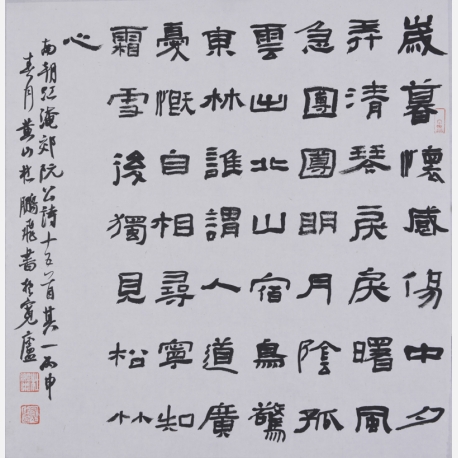 歲暮懷感傷中夕
弄清琴戾戾曙風
急團團明月陰孤
雲出北山宿鳥驚
東林誰謂人道廣
憂慨自相尋寧知
霜雪後獨見松竹
心
南朝江淹郊阮公詩十五首其一丙申
春月黄山程鵬飛書於寬廬